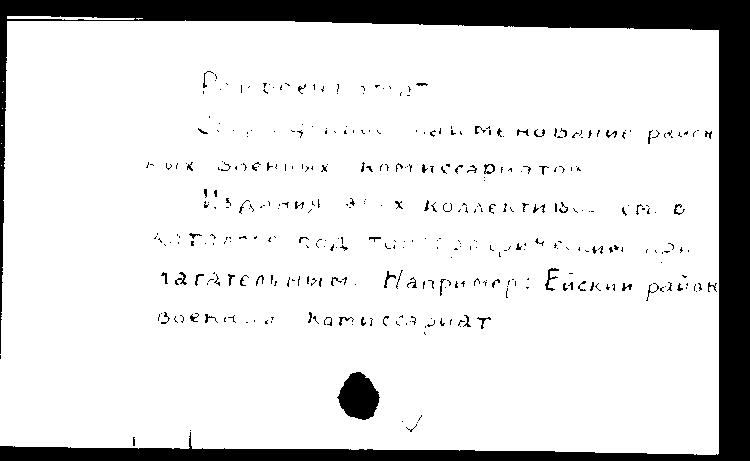 Райвоенкомат
Сокращенное наименование район
ных военных комиссариатов
Издания этих коллективов см. в
каталоге под типографическим при
лагательным. Например: Ейский район
военный комиссариат